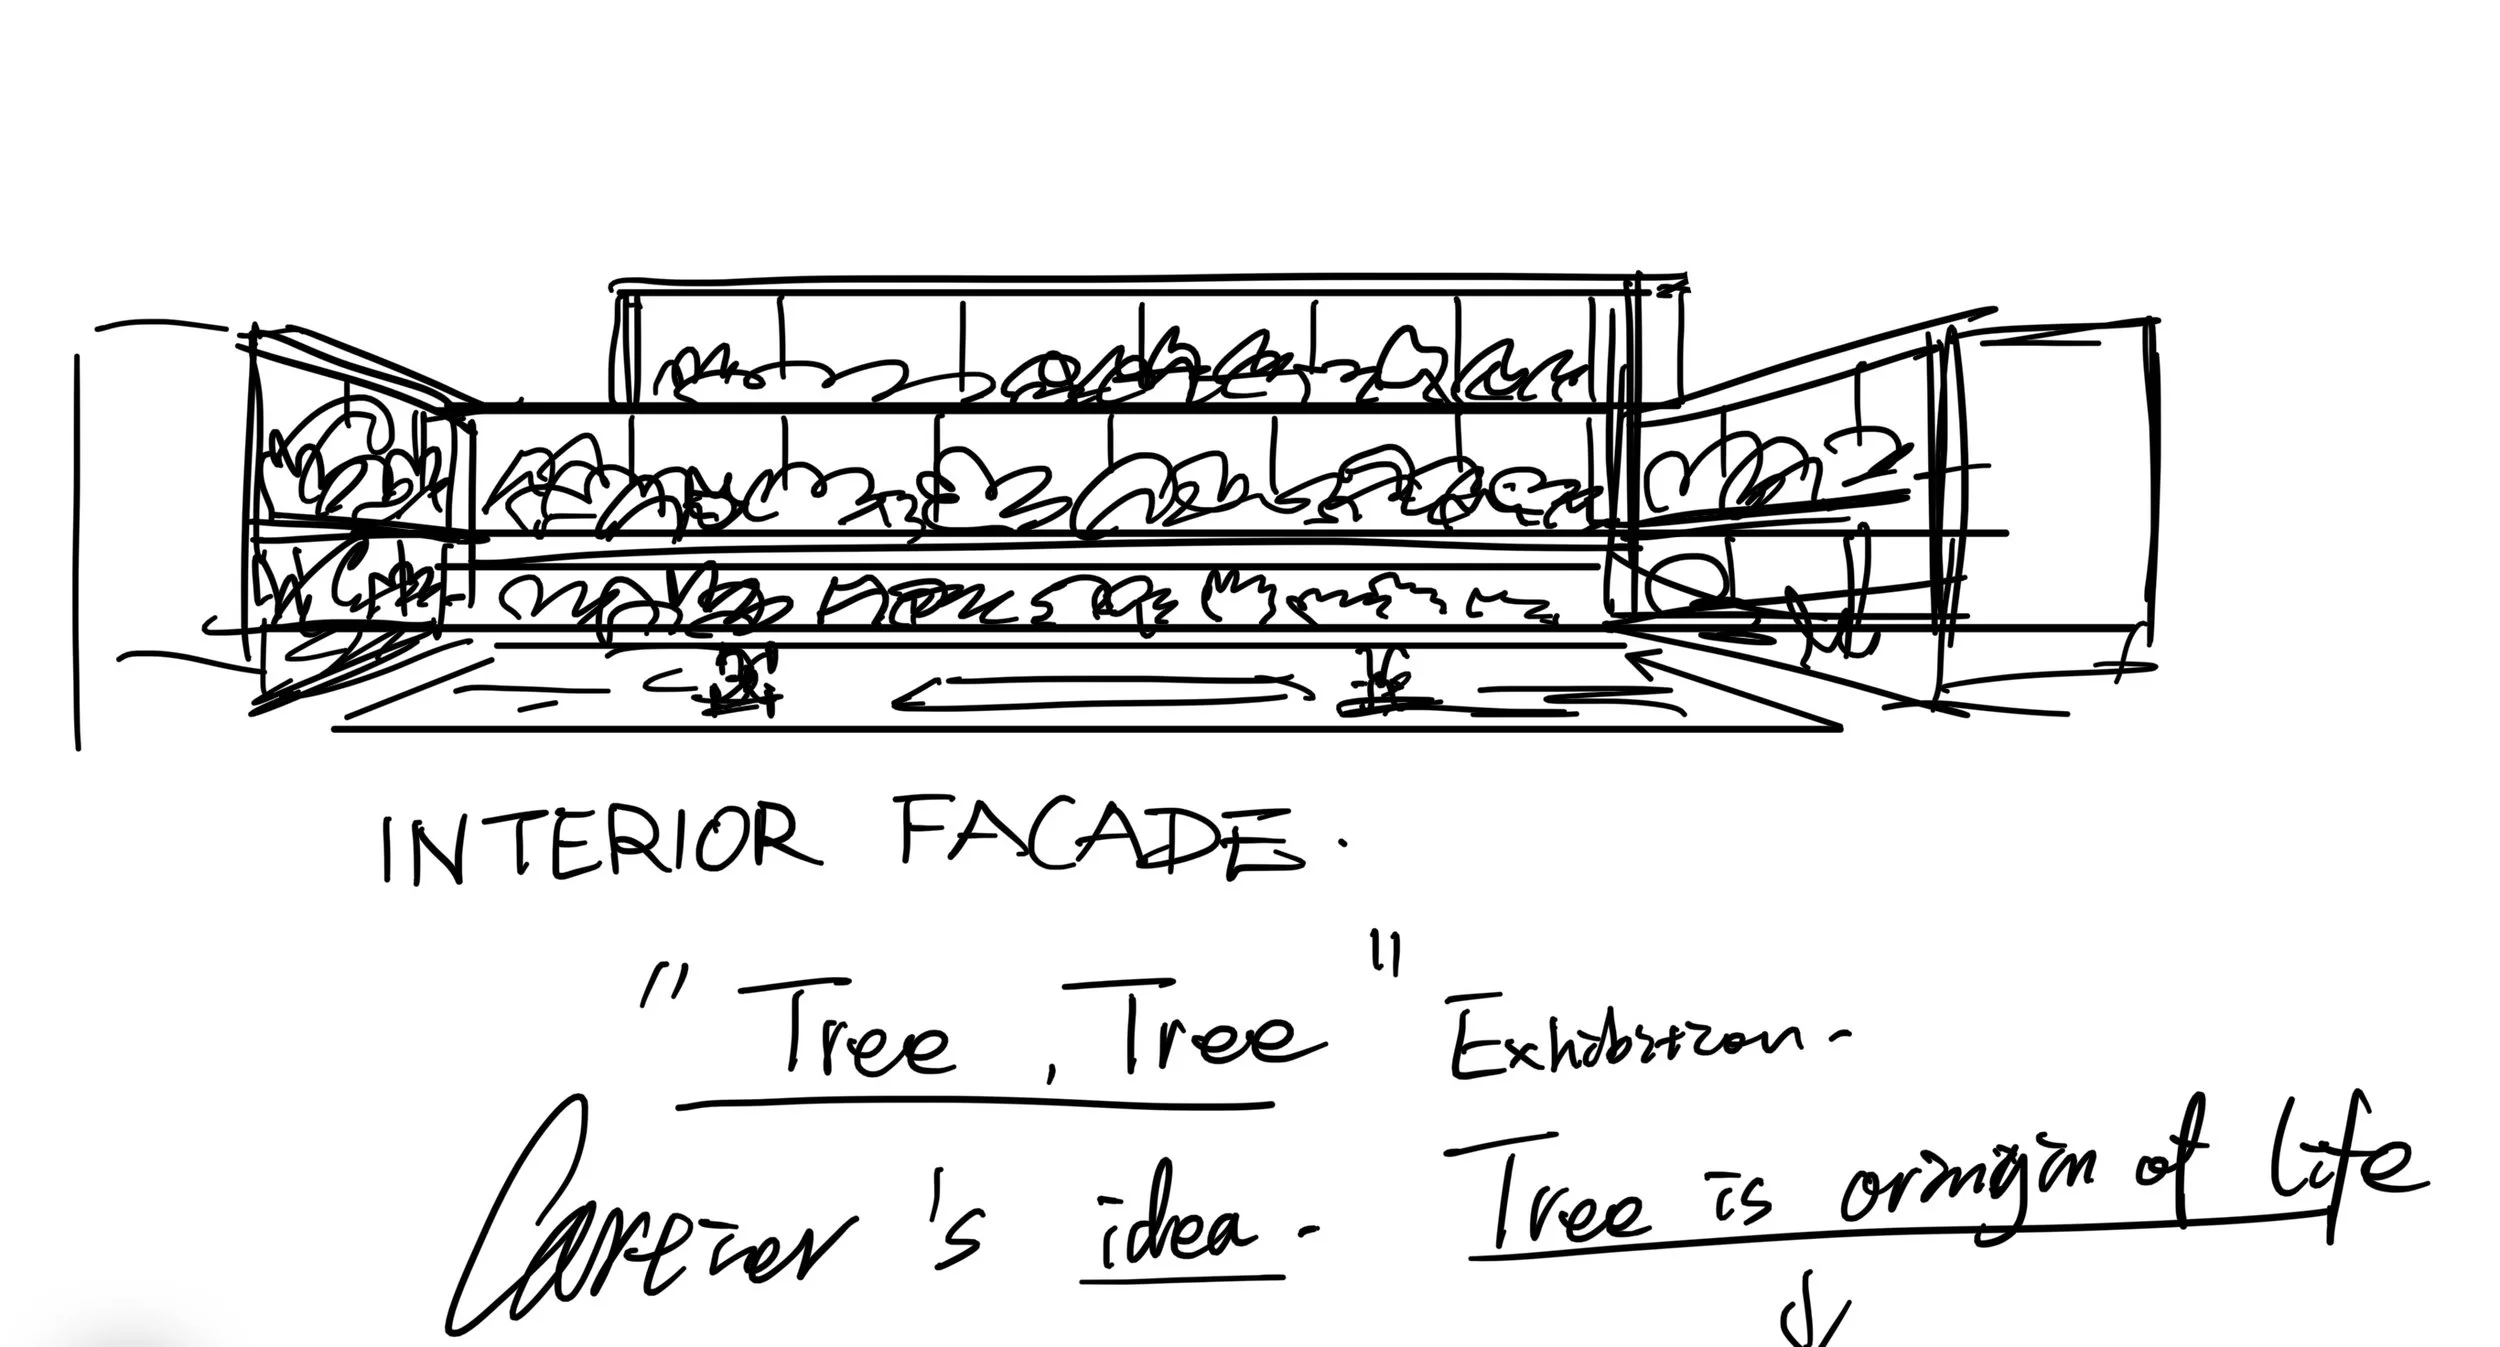 INTERIOR FACADE.
"Tree, Tree" Exhibition-
Cartier's idea-
Tree is oringin of life